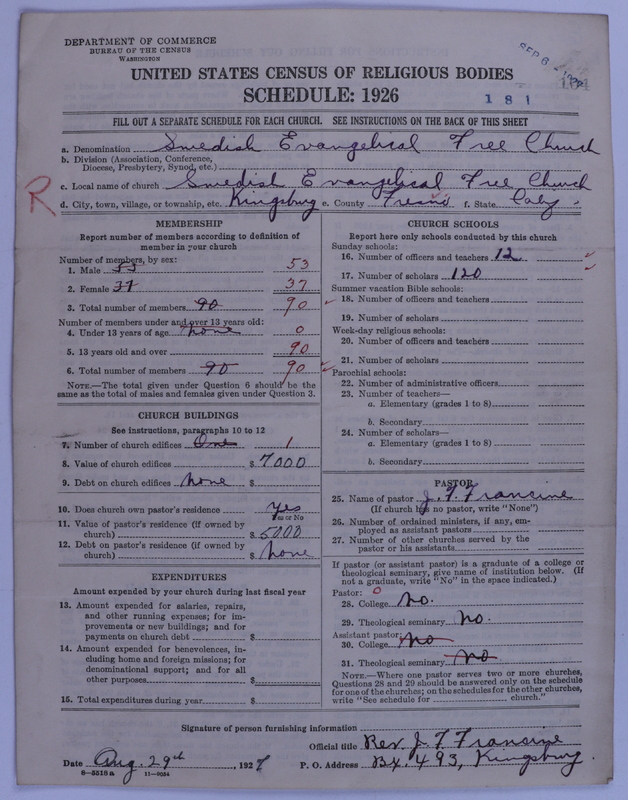 DEPARTMENT OF COMMERCE
BUREAU OF THE CENSUS
WASHINGTON
SEP 6 -
UNITED STATES CENSUS OF RELIGIOUS BODIES
SCHEDULE: 1926
1 8 1
FILL OUT A SEPARATE SCHEDULE FOR EACH CHURCH. SEE INSTRUCTIONS ON THE BACK OF THIS SHEET
a. Denomination Swedish Evangelical Free Church
b. Division (Association, Conference,
Diocese, Presbytery, Synod, etc.)
c. Local name of church Swedish Evangelical Free Church
R
d. City, town, village, or township, etc. Kingsburg e. County Fresno f. State Caly
MEMBERSHIP
Report number of members according to definition of
member in your church
Number of members, by sex:
1. Male 53 53
2. Female 37 37
3. Total number of members 90 90
Number of members under and over 13 years old:
4. Under 13 years of age none 0
5. 13 years old and over 90
6. Total number of members 90 90
NOTE.—The total given under Question 6 should be the
same as the total of males and females given under Question 3.
CHURCH BUILDINGS
See instructions, paragraphs 10 to 12
7. Number of church edifices One 1
8. Value of church edifices $ 7000
9. Debt on church edifices none $
10. Does church own pastor's residence yes
Yes or No
11. Value of pastor's residence (if owned by
church) $ 5000
12. Debt on pastor's residence (if owned by
church) $ none
EXPENDITURES
Amount expended by your church during last fiscal year
13. Amount expended for salaries, repairs,
and other running expenses; for im-
provements or new buildings; and for
payments on church debt $
14. Amount expended for benevolences, in-
cluding home and foreign missions; for
denominational support; and for all
other purposes $
15. Total expenditures during year $
CHURCH SCHOOLS
Report here only schools conducted by this church
Sunday schools:
16. Number of officers and teachers 12
17. Number of scholars 120
Summer vacation Bible schools:
18. Number of officers and teachers
19. Number of scholars
Week-day religious schools:
20. Number of officers and teachers
21. Number of scholars
Parochial schools:
22. Number of administrative officers
23. Number of teachers—
a. Elementary (grades 1 to 8)
b. Secondary
24. Number of scholars—
a. Elementary (grades 1 to 8)
b. Secondary
PASTOR
25. Name of pastor J. T. Francine
(If church has no pastor, write "None")
26. Number of ordained ministers, if any, em-
ployed as assistant pastors
27. Number of other churches served by the
pastor or his assistants
If pastor (or assistant pastor) is a graduate of a college or
theological seminary, give name of institution below. (If
not a graduate, write "No" in the space indicated.)
Pastor: 0
28. College No.
29. Theological seminary No.
Assistant pastor:
30. College No
31. Theological seminary No
NOTE.—Where one pastor serves two or more churches,
Questions 28 and 29 should be answered only on the schedule
for one of the churches; on the schedules for the other churches,
write "See schedule for church."
Signature of person furnishing information
Official title Rev. J. T. Francine
Date Aug. 29th, 1927 P. O. Address Bx. 493, Kingsburg.
8—5518a 11—9054